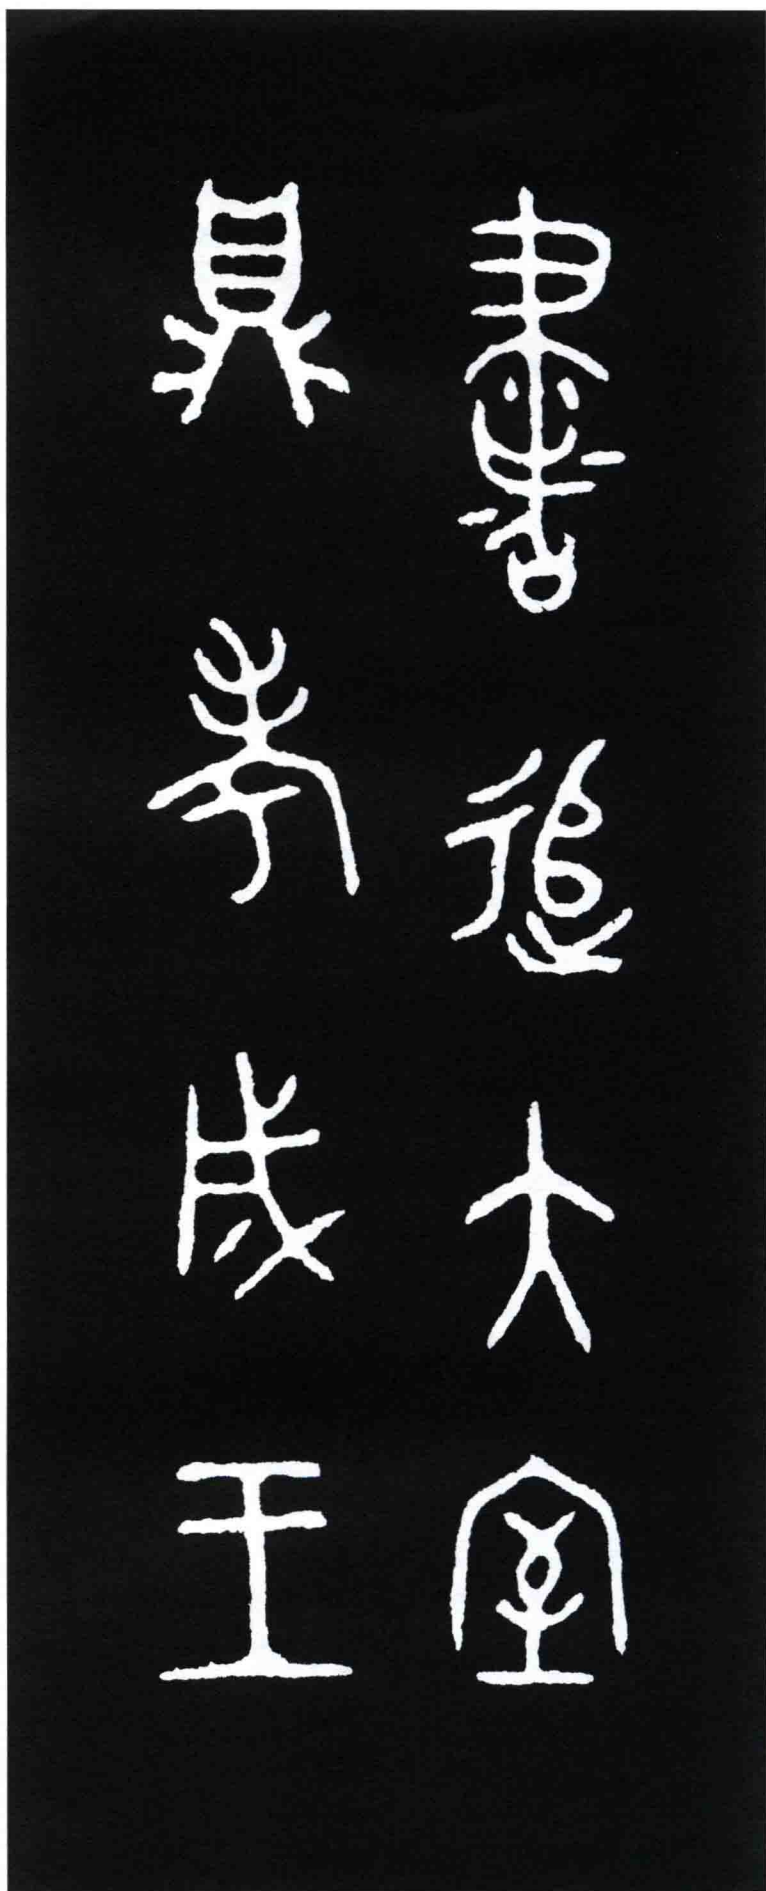 書追大室
具考成王